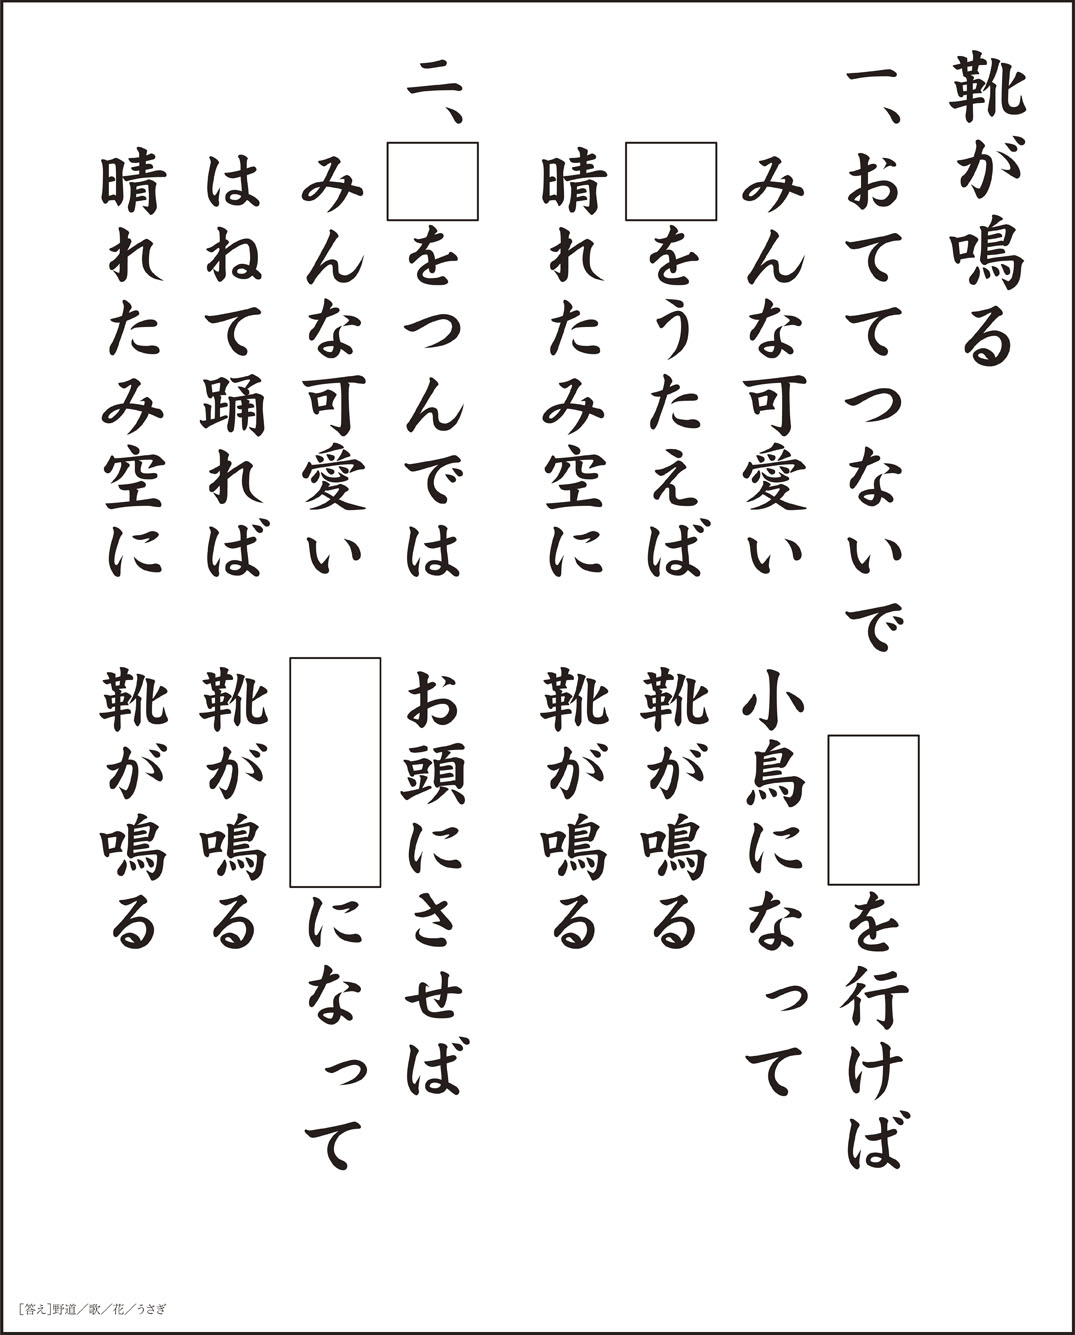 靴が鳴る
一、おててつないで　□を行けば
みんな可愛い　小鳥になって
□をうたえば　靴が鳴る
晴れたみ空に　靴が鳴る
二、□をつんでは　お頭にさせば
みんな可愛い　□になって
はねて踊れば　靴が鳴る
晴れたみ空に　靴が鳴る
［答え］野道／歌／花／うさぎ